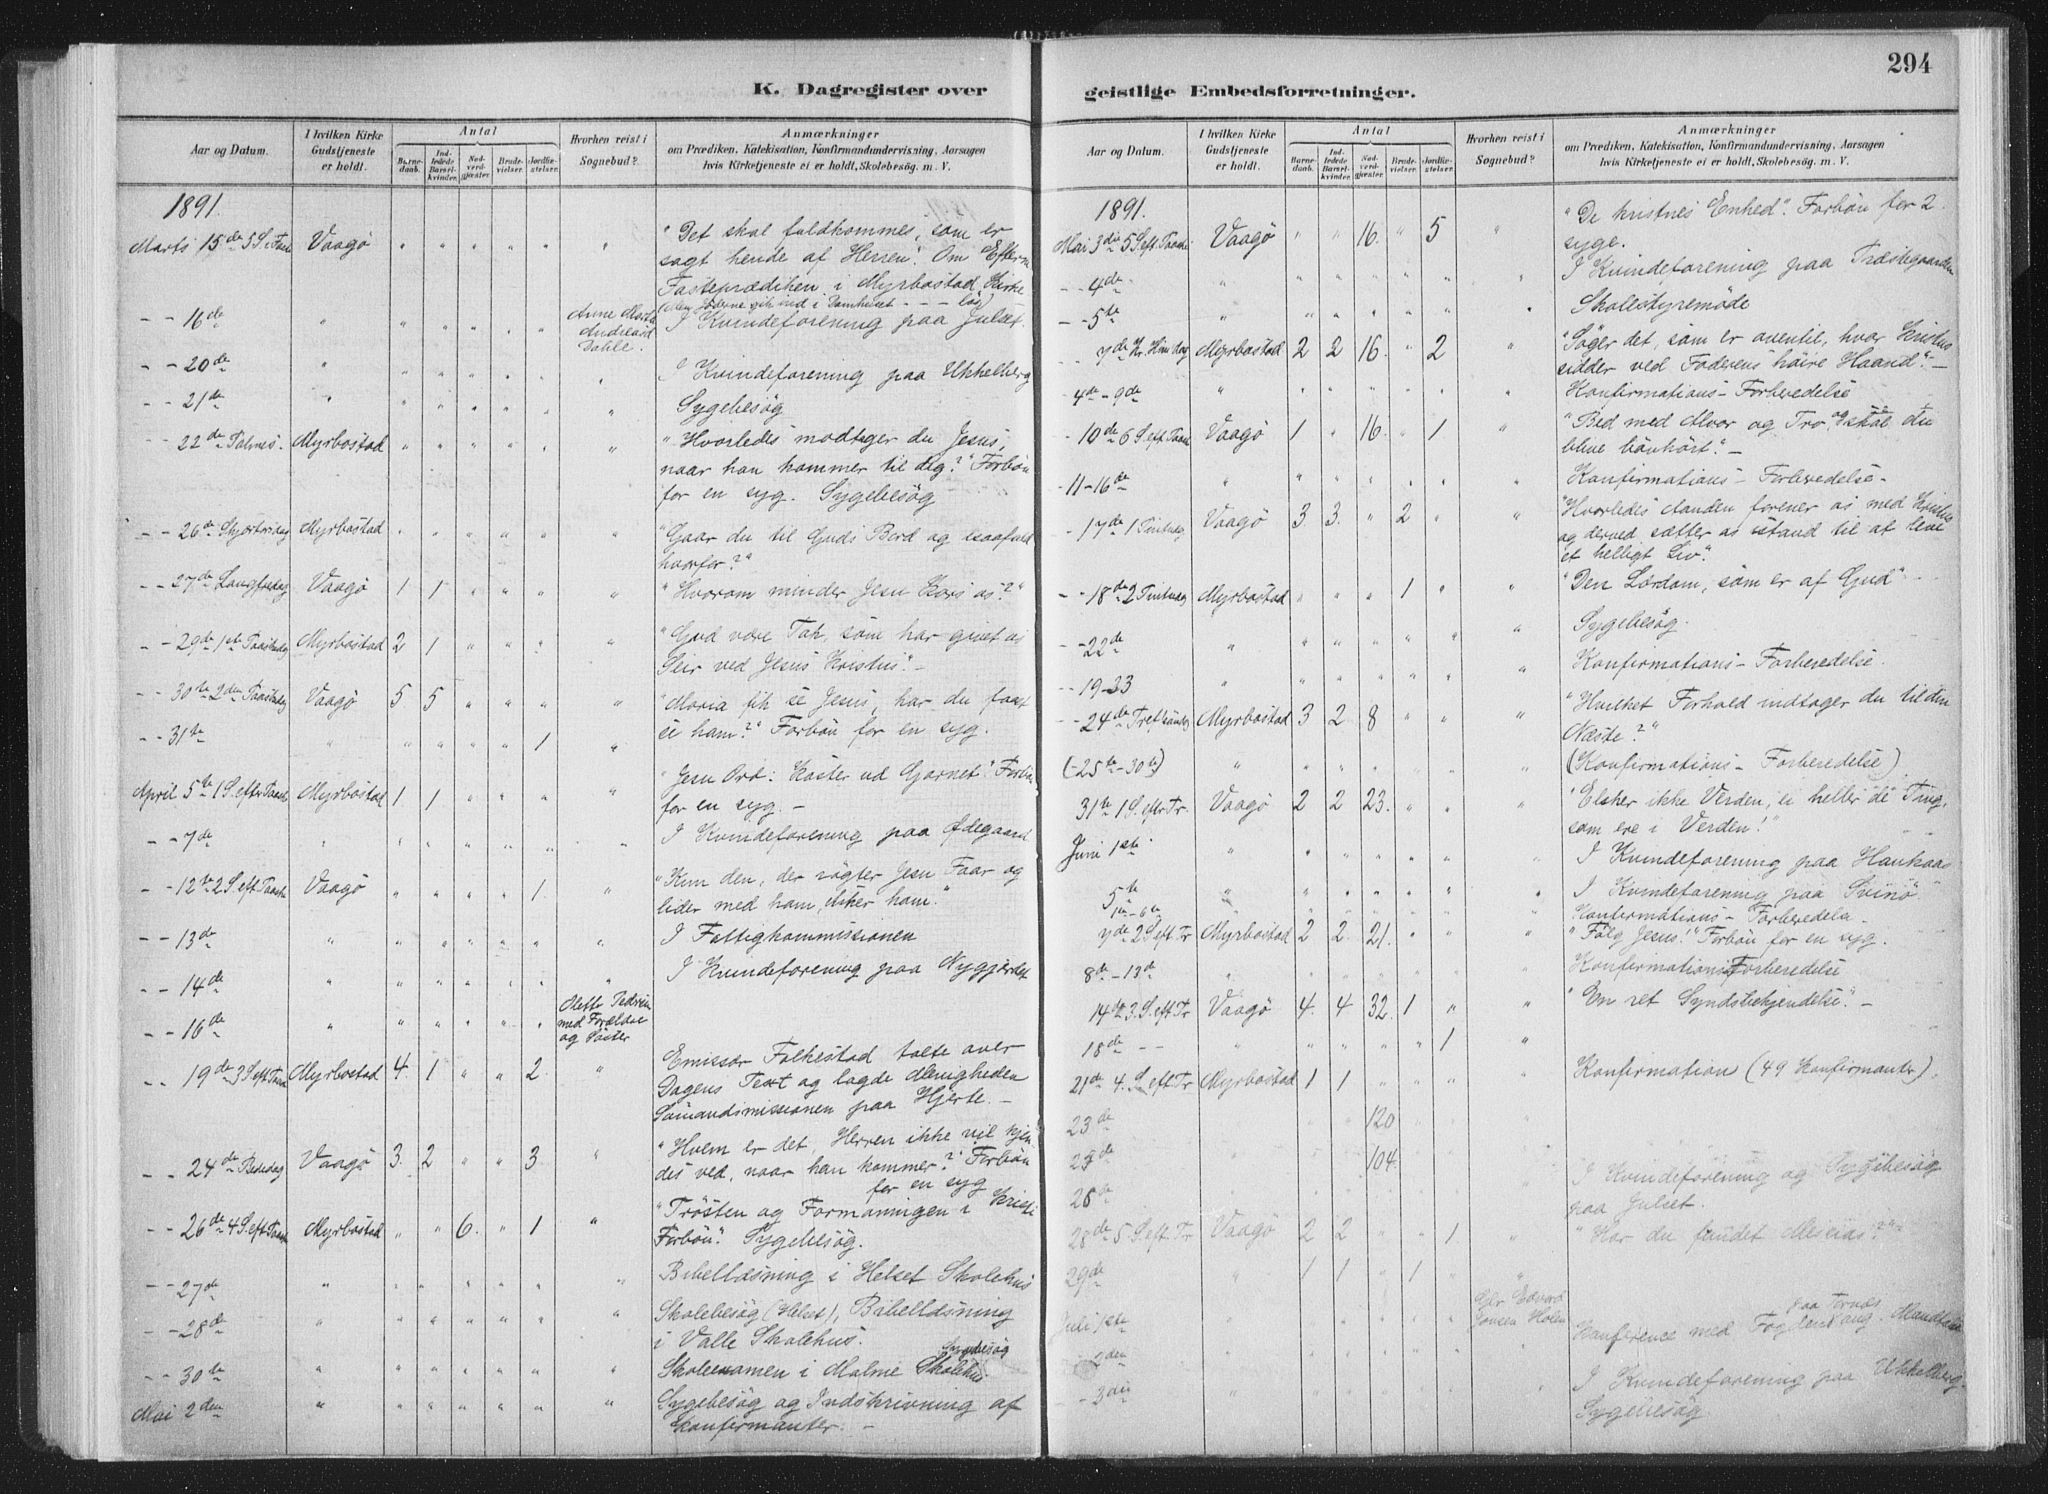 294
K. Dagregister over
geistlige Embedsforretninger.
Aar og Datum.
I hvilken Kirke Gudstjeneste er holdt.
Antal
Barnedaab.
Indledede Barselkvinder.
Nadverdgjæster.
Brudevielser.
Jordfæstelser.
Hvorhen reist i Sognebud?
Anmærkninger
om Prædiken, Katekisation, Konfirmandundervisning, Aarsagen
hvis Kirketjeneste ei er holdt, Skolebesøg. m. V.
1891.
Marts 15de 5 S. i Faste Vaagø " " " " " " "Det skal fuldkommes, som er
sagt hende af Herren". Om Efterm
Fasteprædiken i Myrbostad Kirke
- - 16de " " " " " " Anne Marta I Kvindeforening paa Julset.
Dahle.
- - 20de " " " " " " " I Kvindeforening paa Ukkelberg
- - 21de " " " " " " " Sygebesøg
- - 22de Palmes. Myrbostad " " " " " " "Hvorledes modtager du Jesus,
naar han kommer til dig?" Forbøn
for en syg. Sygebesøg
- - 26de Skjærtorsdag Myrbostad " " " " " " "Gaar du til Guds Bord og isaafald
hvorfor?"
- - 27de Langfredag Vaagø 1 1 " " " " "Hvorom minder Jesu Kors os?"
- - 29de 1ste Paaskedag Myrbostad 2 1 " " " " "Gud være Tak, som har givet os
Seir ved Jesus Kristus". -
- - 30te 2den Paaskedag Vaagø 5 5 " " " " "Maria fik se Jesus, har du faat
- - 31te " " " " " 1 " se ham?" Forbøn for en syg.
April 5te 1 S. efter Paaske Myrbostad 1 1 " " " " "Jesu Ord: Kaster ud Garnet". Forbøn
for en syg. -
- - 7de " " " " " " " I Kvindeforening paa Ødegaard
- - 12te 2 S. eft Paaske Vaagø " " " " 1. " "Kun den, der røgter Jesu Faar og
lider med ham, elsker ham."
- - 13de " " " " " " " I Fattigkommissionen
- - 14de " " " " " " " I Kvindeforening paa Nygjærdet
- - 16de " " " " " " med Forældre
og Søster
- - 19de 3 S. eft Paaske Myrbostad 4. 1 " " 2. " Emissær Falkestad talte over
Dagens Text og lagde Menigheden
Sømandsmissionen paa Hjerte. -
- - 24de Bededag Vaagø 3. 2 " " 3. " "Hvem er det, Herren ikke vil kjen-
des ved, naar han kommer?" Forbøn
for en syg
- - 26de 4 S. eft Paaske Myrbostad " " 6. " 1 " "Trøsten og Formaningen i Kristi
Forbøn". Sygebesøg.
- - 27de " " " " " " " Bibellæsning i Helset Skolehus
- - 28de " " " " " " " Skolebesøg (Helset), Bibellæsning
i Valle Skolehus.
Sygebesøg
- - 30te " " " " " " " Skoleexamen i Malme Skolehus.
Mai 2den " " " " " " " Sygebesøg og Indskrivning af
Konfirmanter. -
Aar og Datum.
I hvilken Kirke Gudstjeneste er holdt.
Antal
Barnedaab.
Indledede Barselkvinder.
Nadverdgjæster.
Brudevielser.
Jordfæstelser.
Hvorhen reist i Sognebud?
Anmærkninger
om Prædiken, Katekisation, Konfirmandundervisning, Aarsagen
hvis Kirketjeneste ei er holdt, Skolebesøg. m. V.
1891.
Mai 3die 5 S. eft. Paaske Vaagø " " 16. " 5 " "De kristnes Enhed". Forbøn for 2
syge.
- - 4de " " " " " " " I Kvindeforening paa Præstegaarden
- - 5te " " " " " " " Skolestyremøde
- - 7de Kr. Him.dag Myrbostad 2 2 16. " 2 " "Søger det, som er oventil, hvor Kristus
sidder ved Faderens høire Haand". -
4de - 9de " " " " " " " Konfirmations-Forberedelse
- 10de 6 S. eft Paaske Vaagø 1 " 16. " 1 " "Bed med Alvor og Tro, og skal du
blive bønhørt". -
- 11-16de " " " " " " " Konfirmations-Forberedelse.
- 17de 1 Pintsedag Vaagø 3. 3. " 2 " " "Hvorledes Aanden forener os med Kristus
og derved sætter os istand til at leve
et helligt Liv".
- - 18de 2 Pintsedag Myrbostad " " " 1 " " "Den Lærdom, som er af Gud"
- - 22de " " " " " " " Sygebesøg.
- - 19-23 " " " " " " " Konfirmations-Forberedelse.
- - 24de Tref. søndag Myrbostad 3 2 8 " " " "Hvilket Forhold indtager du til din
Næste?"
(-25te-30te) " " " " " " " (Konfirmations-Forberedelse)
31te 1 S. eftr Tr. Vaagø 2 2 23. " " " "Elsker ikke Verden, ei heller de Ting,
som ere i Verden!"
Juni 1ste " " " " " " " I Kvindeforening paa Haukaas
5te " " " " " " " I Kvindeforening paa Svinø
1ste-6te " " " " " " Konfirmations-Forberedelse
7de 2 S. eft Tr Myrbostad 2 2. 21. " " " "Følg Jesus!" Forbøn for en syg.
8de - 13de " " " " " " " Konfirmations-Forberedelse
14de 3. S. eft Tr Vaagø 4. 4 32. 1 " " "En ret Syndsbekjendelse". -
18de - - " " " " " 1 "
21de 4. S. eft Tr Myrbostad 1 1 " " " " Konfirmation (49 Konfirmanter).
23de " " 120
" 104.
26de " " " " " " " I Kvindeforening og Sygebesøg
paa Julset.
28de 5 S. eft. Tr Vaagø 2 2 " " 1 " "Har du fundet Messias?"
29de " 1 1 " 1 " "
Juli 1ste " " " " " " Jonsen Holen Konference med Foglden ang. Mandtale
paa Tornes
- 2den
- 3die " " " " " " " I Kvindeforening paa Ukkelberg.
Sygebesøg